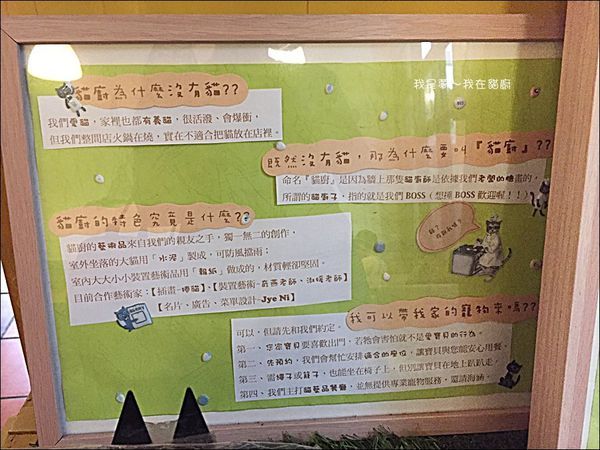 我是夢～我在貓廚
貓廚為什麼沒有貓??
我們愛貓，家裡也都有養貓，很活潑、會暴衝，
但我們整間店火鍋在燒，實在不適合把貓放在店裡。
既然沒有貓，取為什麼要叫『貓廚』??
命名『貓廚』是因為牆上那隻貓廚師是依據我們老闆的臉畫的，
所謂的貓廚子，指的就是我們 BOSS（想揍 BOSS 歡迎喔！！）
貓廚的特色究竟是什麼??
貓廚的藝術品來自我們的親友之手，獨一無二的創作，
室外坐落的大貓用「水泥」製成，可防風擋雨；
室內大大小小裝置藝術品用「報紙」做成的，材質輕卻堅固。
目前合作藝術家：【插畫-
【名片、廣告、菜單設計-Jye Ni】
我可以帶我家的寵物來嗎??
可以，但請先和我們約定，
第一、您家寶貝要喜歡出門，若牠會害怕就不是愛寶貝的行為。
第二、先預約，我們會幫忙安排適合的座位，讓寶貝與您能安心用餐。
第三、需繩子或籠子，也能坐在椅子上，但別讓寶貝在地上趴趴走。
第四、我們主打貓藝品餐廳，並無提供專業寵物服務，還請海涵。